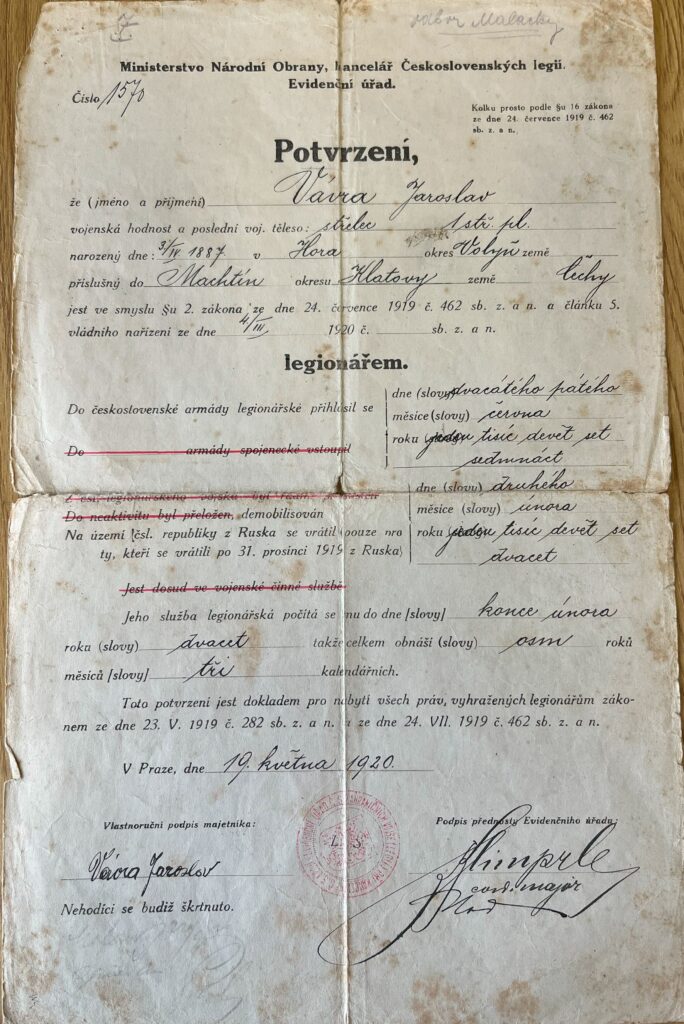 odbor Malacky
Ministerstvo Národní Obrany, kancelář Československých legií.
Evidenční úřad.
Číslo 1570
Kolku prosto podle §u 16 zákona
ze dne 24. července 1919 č. 462
sb. z a n.
Potvrzení,
že (jméno a příjmení) Vávra Jaroslav
vojenská hodnost a poslední voj. těleso: střelec 1 stř. pl.
narozený dne: 3/IV 1887 v Hora okres Volyň země
příslušný do Machtín okresu Klatovy země Čechy
jest ve smyslu §u 2. zákona ze dne 24. července 1919 č. 462 sb. z a n. a článku 5.
vládního nařízení ze dne 4/III 1920 č. sb. z a n.
legionářem.
Do československé armády legionářské přihlásil se
Do armády spojenecké vstoupil
dne (slovy) dvacátého pátého
měsíce (slovy) června
roku (slovy) tisíc devět set
sedmnáct
Z čsl. legionářského vojska byl
Do neaktivity byl přeložen, demobilisován
Na území čsl. republiky z Ruska se vrátil (pouze pro
ty, kteří se vrátili po 31. prosinci 1919 z Ruska)
dne (slovy) druhého
měsíce (slovy) února
roku (slovy) tisíc devět set
dvacet
Jest dosud ve vojenské činné službě
Jeho služba legionářská počítá se mu do dne [slovy] konce února
roku (slovy) dvacet takže celkem obnáší (slovy) osm roků
měsíců [slovy] tři kalendářních.
Toto potvrzení jest dokladem pro nabytí všech práv, vyhražených legionářům záko-
nem ze dne 23. V. 1919 č. 282 sb. z a n. a ze dne 24. VII. 1919 č. 462 sb. z a n.
V Praze, dne 19. května 1920.
Vlastnoruční podpis majetníka:
Podpis přednosty Evidenčního úřadu:
Vávra Jaroslav
Himprle
major
Nehodící se budiž škrtnuto.